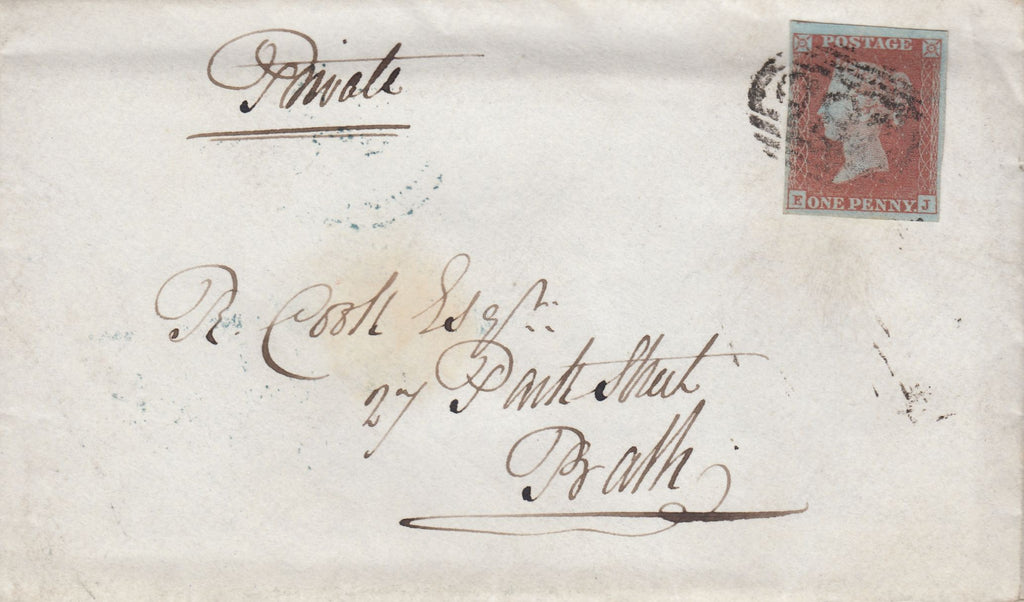 Private
POSTAGE
E ONE PENNY. J
R. Cook Esqre
27 Park Street
Bath